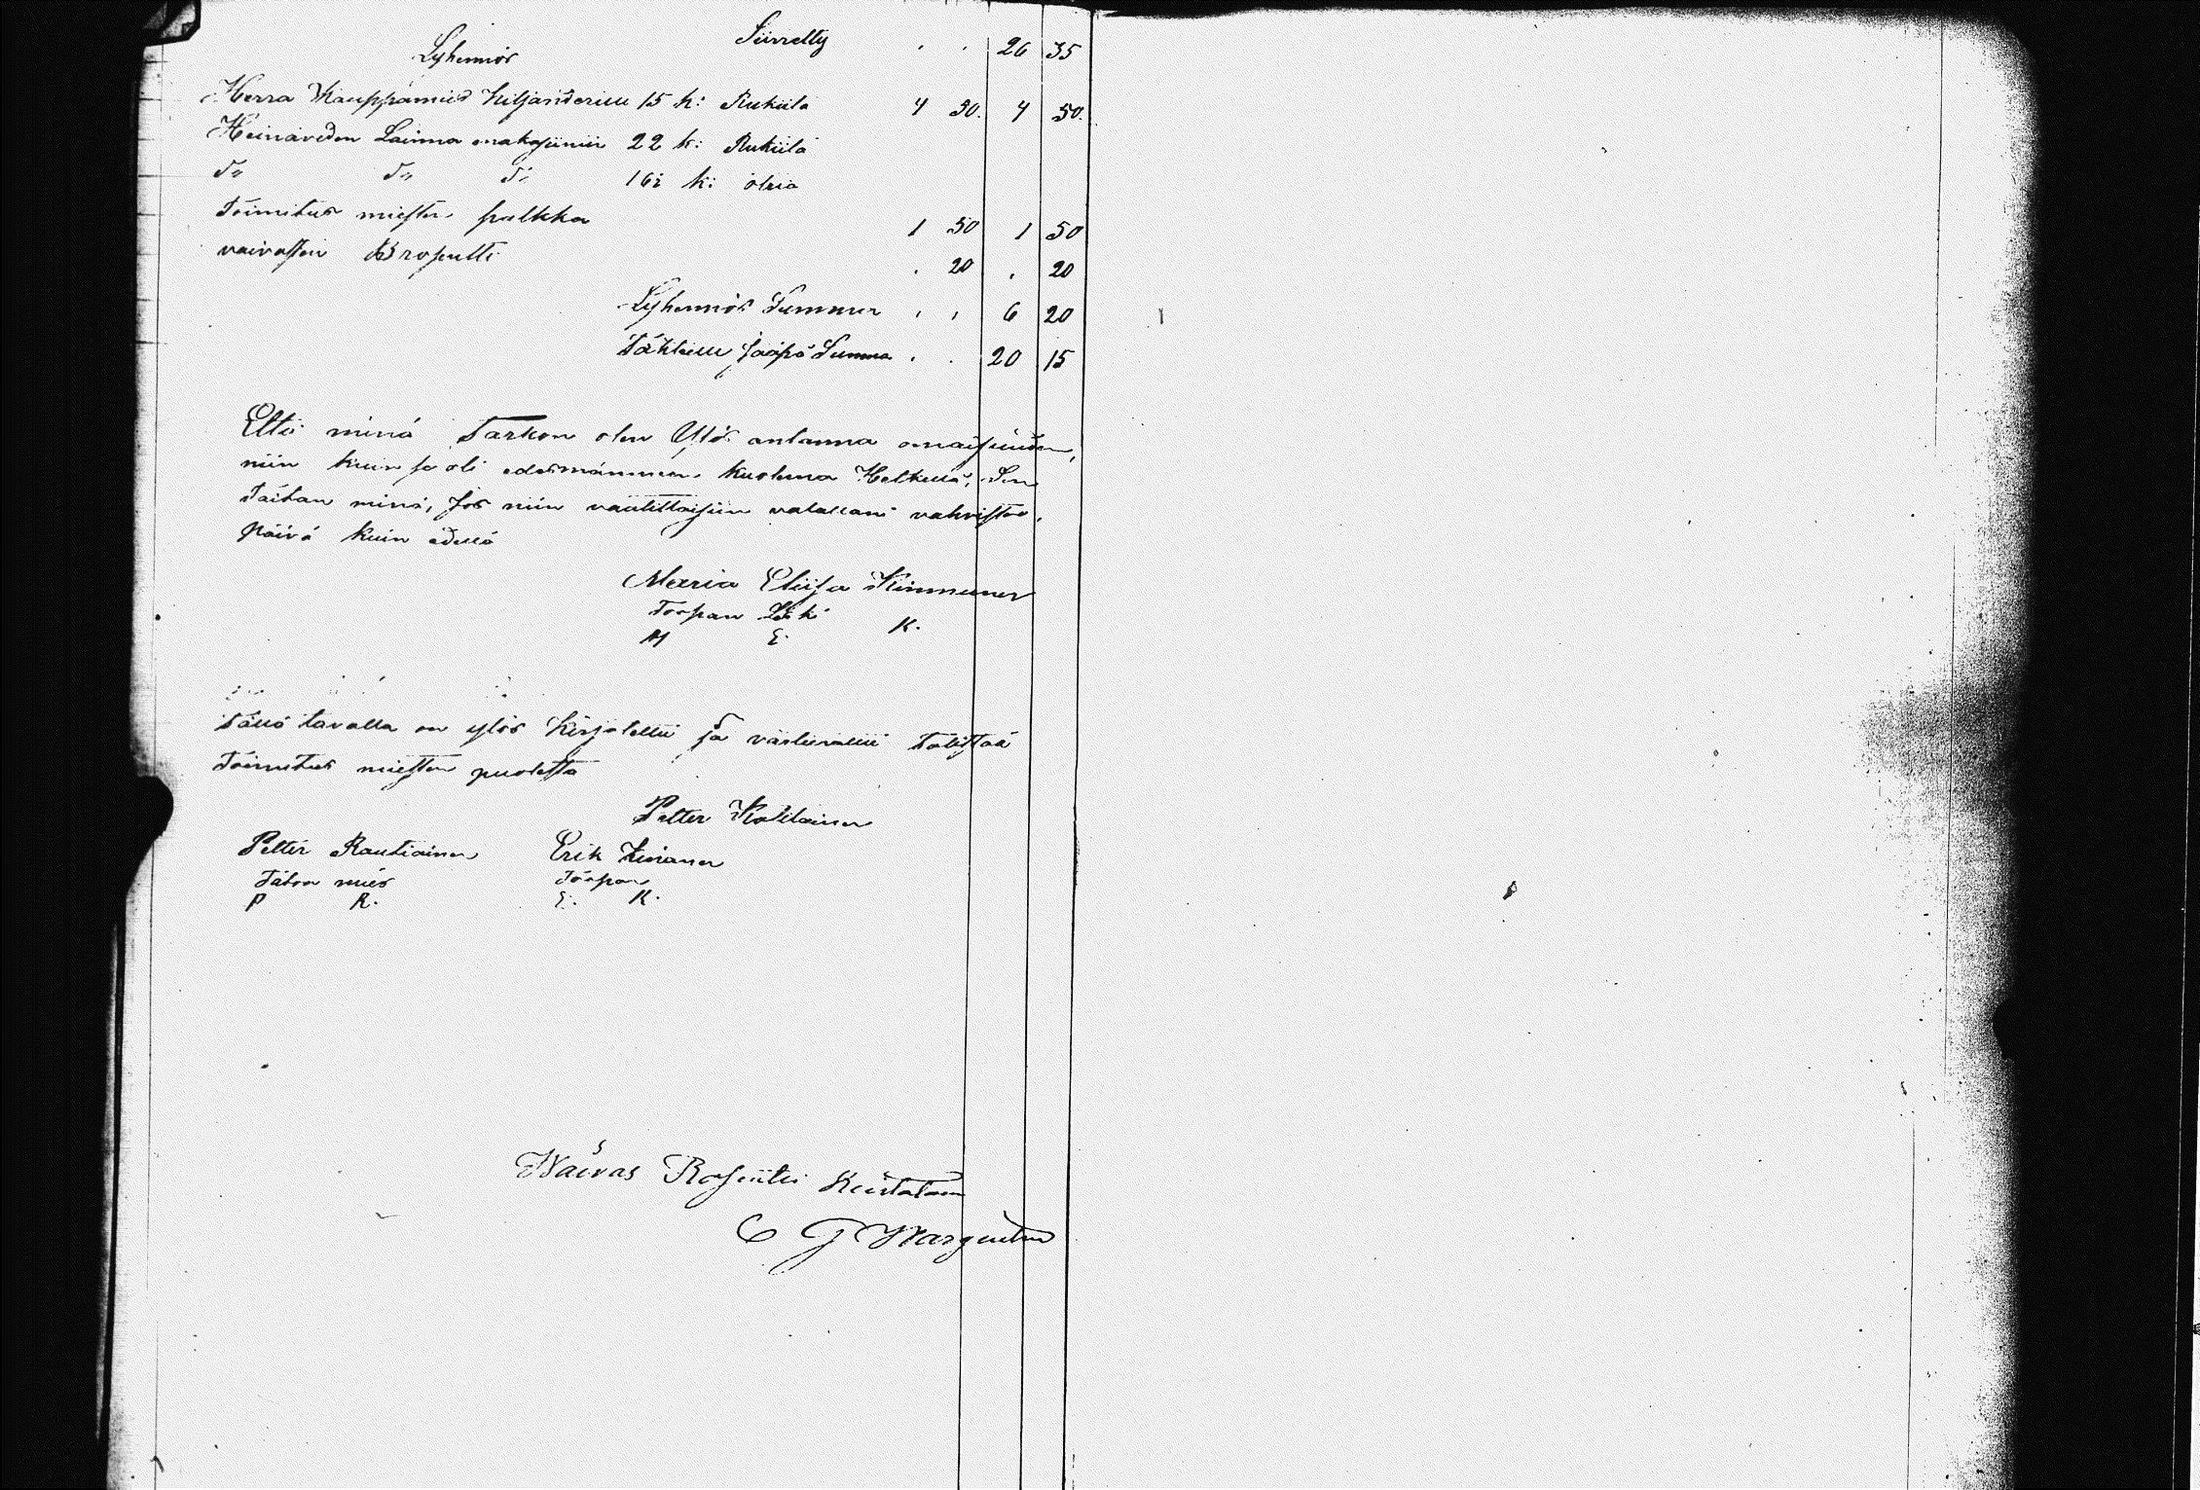 Siirretty . . 26 35
Lyhennös
Herra Kauppamies Kiljanderille 15 k: Rukiita 4 50. 4 50.
Heinäveden Lainna makasiiniin 22 k: Rukiita
D:o D:o D:o 16½ k: ohria
Toimitus miesten palkka 1 50 1 50
vaivasten Prosentti . 20 . 20
Lyhennös Summa , , 6 20
Säästöön jääpä Summa . . 20 15
Että minä Tarkon olen Ylös antanna omaisuuden,
niin kuin se oli edesmänneen kuolema Hetkellä, Sen
Taidan minä, jos niin vaadittaisiin valallani vahvistaa.
Päivä kuin edellä
Maria Eliisa Kinnunen
Torpan Leski
M E. K.
Tällä tavalla on ylös kirjotettu ja värdierattu Todistaa
Toimitus miesten puolesta
Petter Kotilainen
Petter Rautiainen Erik
Talon mies Torpari
P R. E. K.
Waivas Rosentti Kuitataan
C G Wargentin